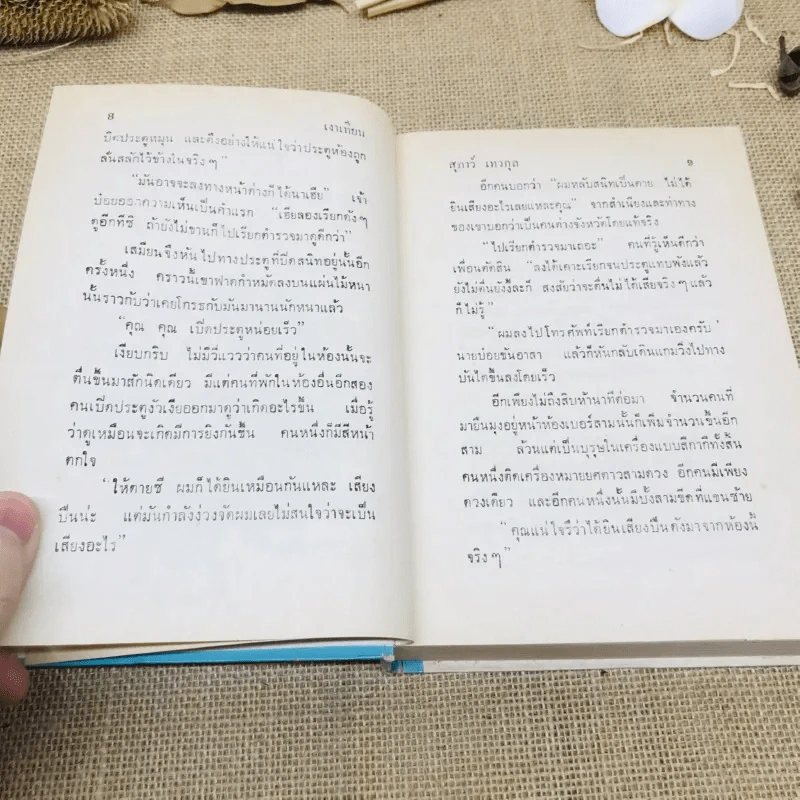 8
เงาเทียน
บิดประตูหมุน และดึงอย่างให้แน่ใจว่าประตูห้องถูก
ลั่นสลักไว้ข้างในจริง ๆ"
"มันอาจจะลงทางหน้าต่างก็ได้นาเฮีย" เจ้า
บ๋อยออกความเห็นเป็นคำแรก "เฮียลองเรียกดังๆ
ดูอีกทีซิ ถ้ายังไม่ขานก็ไปเรียกตำรวจมาดูดีกว่า"
เสมียนจึงหันไปทางประตูที่ปิดสนิทอยู่นั้นอีก
ครั้งหนึ่ง คราวนี้เขาฟาดกำหมัดลงบนแผ่นไม้หนา
นั้นราวกับว่าเคยโกรธกับมันมานานนักหนาแล้ว
"คุณ คุณ เปิดประตูหน่อยเร็ว"
เงียบกริบ ไม่มีวี่แววว่าคนที่อยู่ในห้องนั้นจะ
ตื่นขึ้นมาสักนิดเดียว มีแต่คนที่พักในห้องอื่นอีกสอง
คนเปิดประตูงัวเงียออกมาดูว่าเกิดอะไรขึ้น เมื่อรู้
ว่าดูเหมือนจะเกิดมีการยิงกันขึ้น คนหนึ่งก็มีสีหน้า
ตกใจ
"ให้ตายซี ผมก็ได้ยินเหมือนกันแหละ เสียง
ปืนน่ะ แต่มันกำลังง่วงจัดผมเลยไม่สนใจว่าจะเป็น
เสียงอะไร"
สุภาว์ เทวกุล
9
อีกคนบอกว่า "ผมหลับสนิทเป็นตาย ไม่ได้
ยินเสียงอะไรเลยแหละคุณ" จากสำเนียงและท่าทาง
ของเขาบอกว่าเป็นคนต่างจังหวัดโดยแท้จริง
"ไปเรียกตำรวจมาเถอะ" คนที่รู้เห็นดีกว่า
เพื่อนตัดสิน "ลงได้เคาะเรียกจนประตูแทบพังแล้ว
ยังไม่ตื่นยังงี้ละก็ สงสัยว่าจะตื่นไม่ได้เสียจริง ๆ แล้ว
ก็ไม่รู้"
"ผมลงไปโทรศัพท์เรียกตำรวจมาเองครับ"
นายบ๋อยขันอาสา แล้วก็หันกลับเดินแกมวิ่งไปทาง
บันไดขึ้นลงโดยเร็ว
อีกเพียงไม่ถึงสิบห้านาทีต่อมา จำนวนคนที่
มายืนมุงอยู่หน้าห้องเบอร์สามนั้นก็เพิ่มจำนวนขึ้นอีก
สาม ล้วนแต่เป็นบุรุษในเครื่องแบบสีกากีทั้งสิ้น
คนหนึ่งติดเครื่องหมายยศดาวสามดวง อีกคนมีเพียง
ดวงเดียว และอีกคนหนึ่งนั้นมีบั้งสามขีดที่แขนซ้าย
"คุณแน่ใจรึว่าได้ยินเสียงปืนดังมาจากห้องนี้
จริง ๆ"